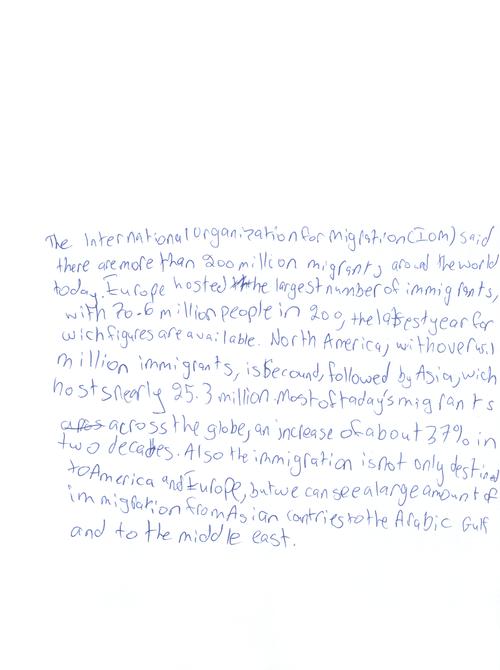 The International organization for migration (Iom) said
there are more than 200 million migrants around the world
today. Europe hosted the largest number of immigrants,
with 70.6 million people in 200, the latest year for
wich figures are available. North America, with over 45.1
million immigrants, is secound, followed by Asia, wich
hosts nearly 25.3 million. Most of today's migrants
across the globe, an increase of about 37% in
two decades. Also the immigration is not only destined
to America and Europe, but we can see a large amount of
immigration from Asian contries to the Arabic Gulf
and to the middle east.